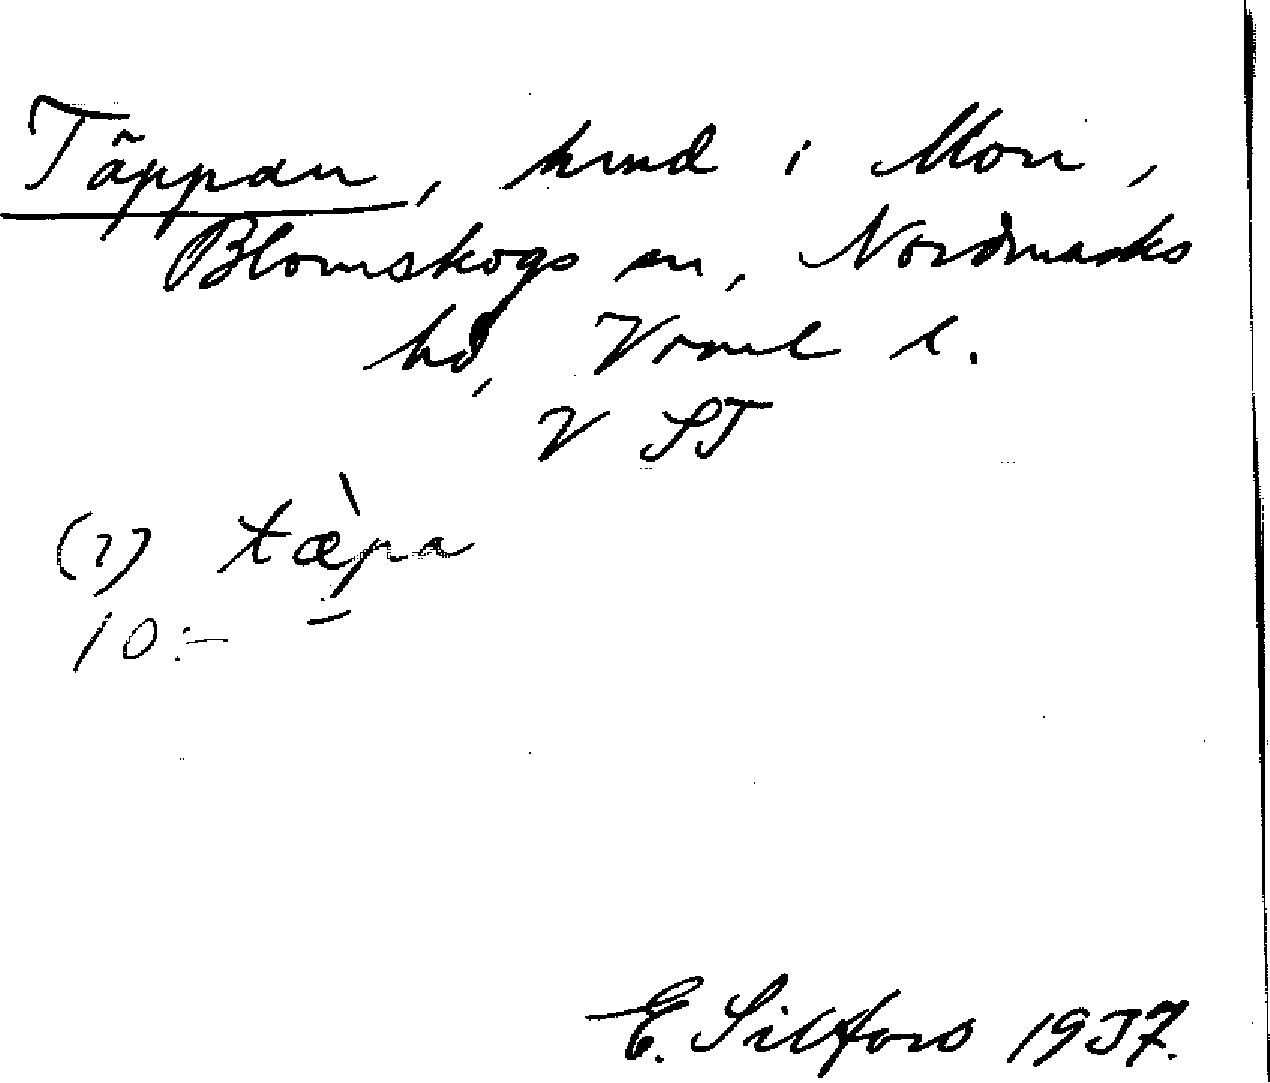 Täppan, hmd i Mon,
Blomskogs sn, Nordmarks
hd, Vrml l.
V ST
(1) tæ̀pa
10:-
E. Silfors 1937.